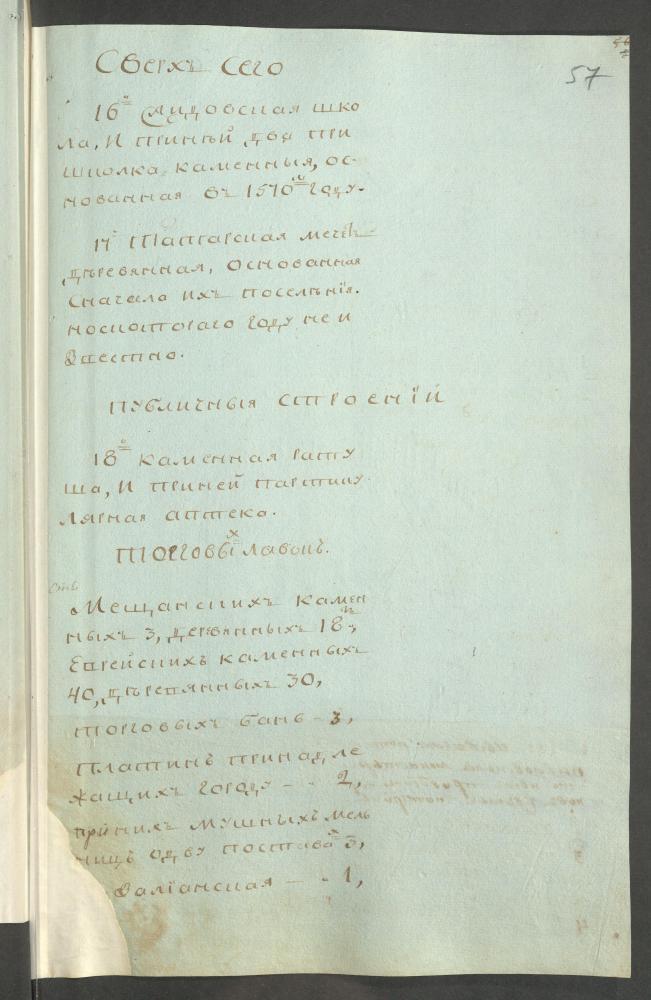 57
Сверхъ сего
16е Жидовская шко
ла, и приней две при
школка каменныя, ос-
нованная въ 1570мъ году.
17е Татарская мечеть
деревянная, основанная
сначала ихъ поселенїя.
нокоотораго году не и
звестно.
Публичныя строенїй
18е каменная рату
ша, и приней партику
лярная аптека.
Торговыхъ лавокъ.
Мещанскихъ камен
ныхъ 3, деревянныхъ 18,
Еврейскихъ каменныхъ
40, деревянныхъ 30,
торговыхъ бань - 3,
Платинъ принадле
жащихъ городу - - 2,
принихъ мушныхъ мель
ницъ одву поставахъ 3,
валїанская - - 1,